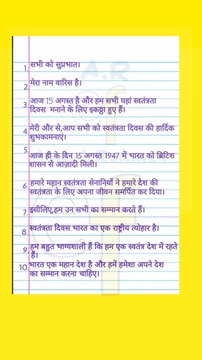 1. सभी को सुप्रभात।
2. मेरा नाम वारिस है।
3. आज 15 अगस्त है और हम सभी यहां स्वतंत्रता
दिवस मनाने के लिए इकठ्ठा हुए हैं।
4. मेरी और से,आप सभी को स्वतंत्रता दिवस की हार्दिक
शुभकामनाएं।
5. आज ही के दिन 15 अगस्त 1947 में भारत को ब्रिटिश
शासन से आज़ादी मिली।
6. हमारे महान स्वतंत्रता सेनानियों ने हमारे देश की
स्वतंत्रता के लिए अपना जीवन समर्पित कर दिया।
7. इसीलिए,हम उन सभी का सम्मान करते हैं।
8. स्वतंत्रता दिवस भारत का एक राष्ट्रीय त्योहार है।
9. हम बहुत भाग्यशाली हैं कि हम एक स्वतंत्र देश में रहते
हैं।
10. भारत एक महान देश है और हमें हमेशा अपने देश
का सम्मान करना चाहिए।